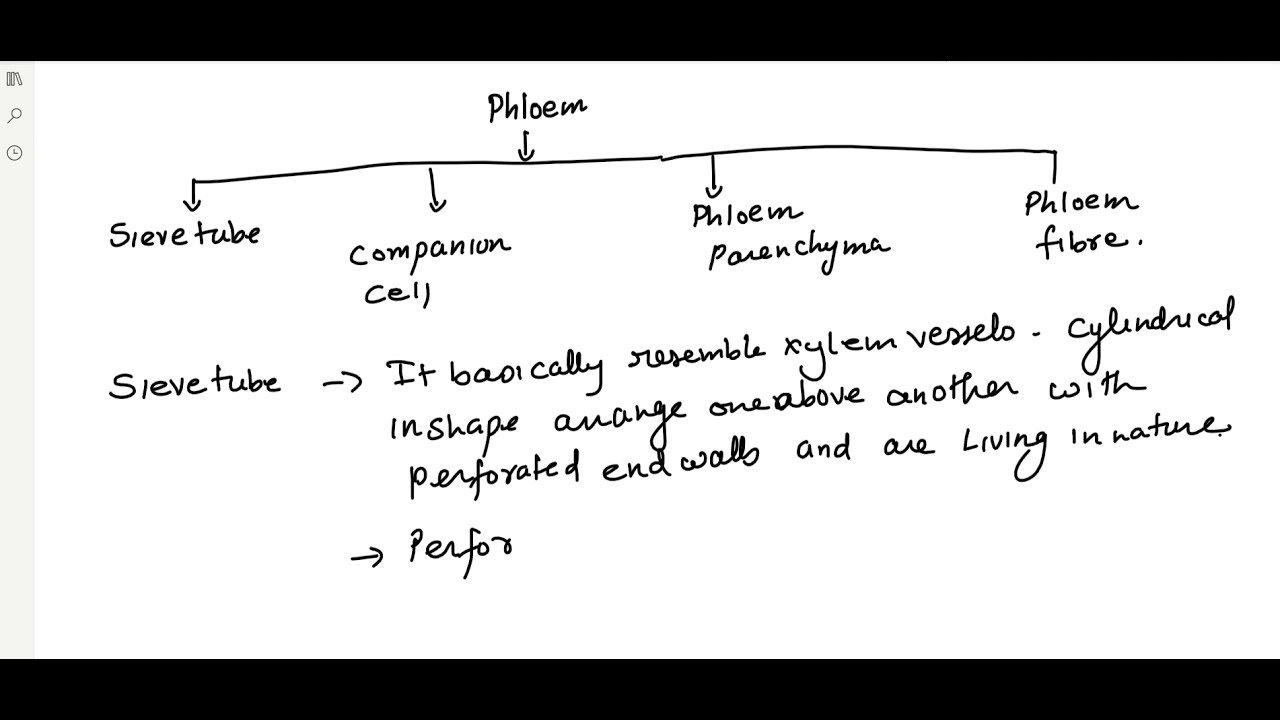 Phloem
Sieve tube
Companion
Cell
Phloem
Parenchyma
Phloem
fibre.
Sieve tube → It basically resemble xylem vessels - Cylindrical
in shape arrange one above another with
perforated end walls and are Living in nature.
→ Perfor